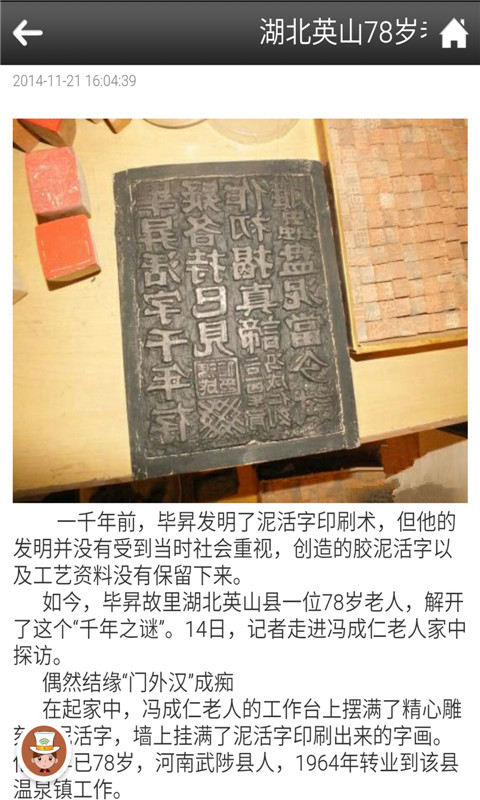 湖北英山78岁
2014-11-21 16:04:39
畢昇活字千年存
疑各持已見
作初揭真諦
雕蟲盘泥當今
一千年前，毕昇发明了泥活字印刷术，但他的
发明并没有受到当时社会重视，创造的胶泥活字以
及工艺资料没有保留下来。
如今，毕昇故里湖北英山县一位78岁老人，解开
了这个“千年之谜”。14日，记者走进冯成仁老人家中
探访。
偶然结缘“门外汉”成痴
在起家中，冯成仁老人的工作台上摆满了精心雕
刻泥活字，墙上挂满了泥活字印刷出来的字画。
年已78岁，河南武陟县人，1964年转业到该县
温泉镇工作。